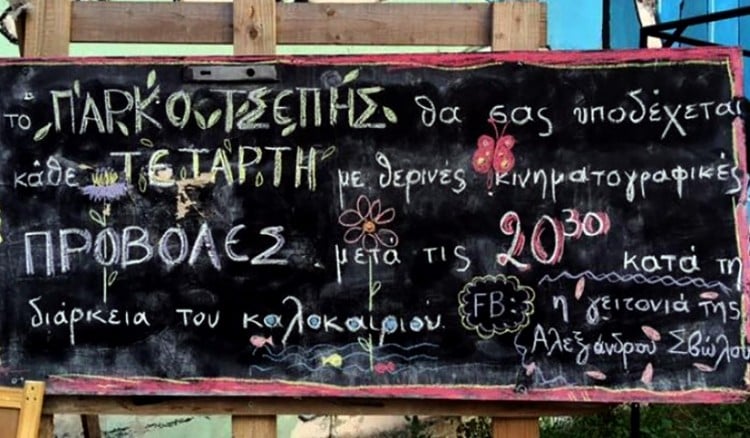 το ΠΑΡΚΟ ΤΣΕΠΗΣ θα σας υποδέχεται
κάθε ΤΕΤΑΡΤΗ με θερινές κινηματογραφικές
ΠΡΟΒΟΛΕΣ μετά τις 20³⁰ κατά τη
διάρκεια του καλοκαιριού.
FB: η γειτονιά της
Αλεξάνδρου Σβώλου